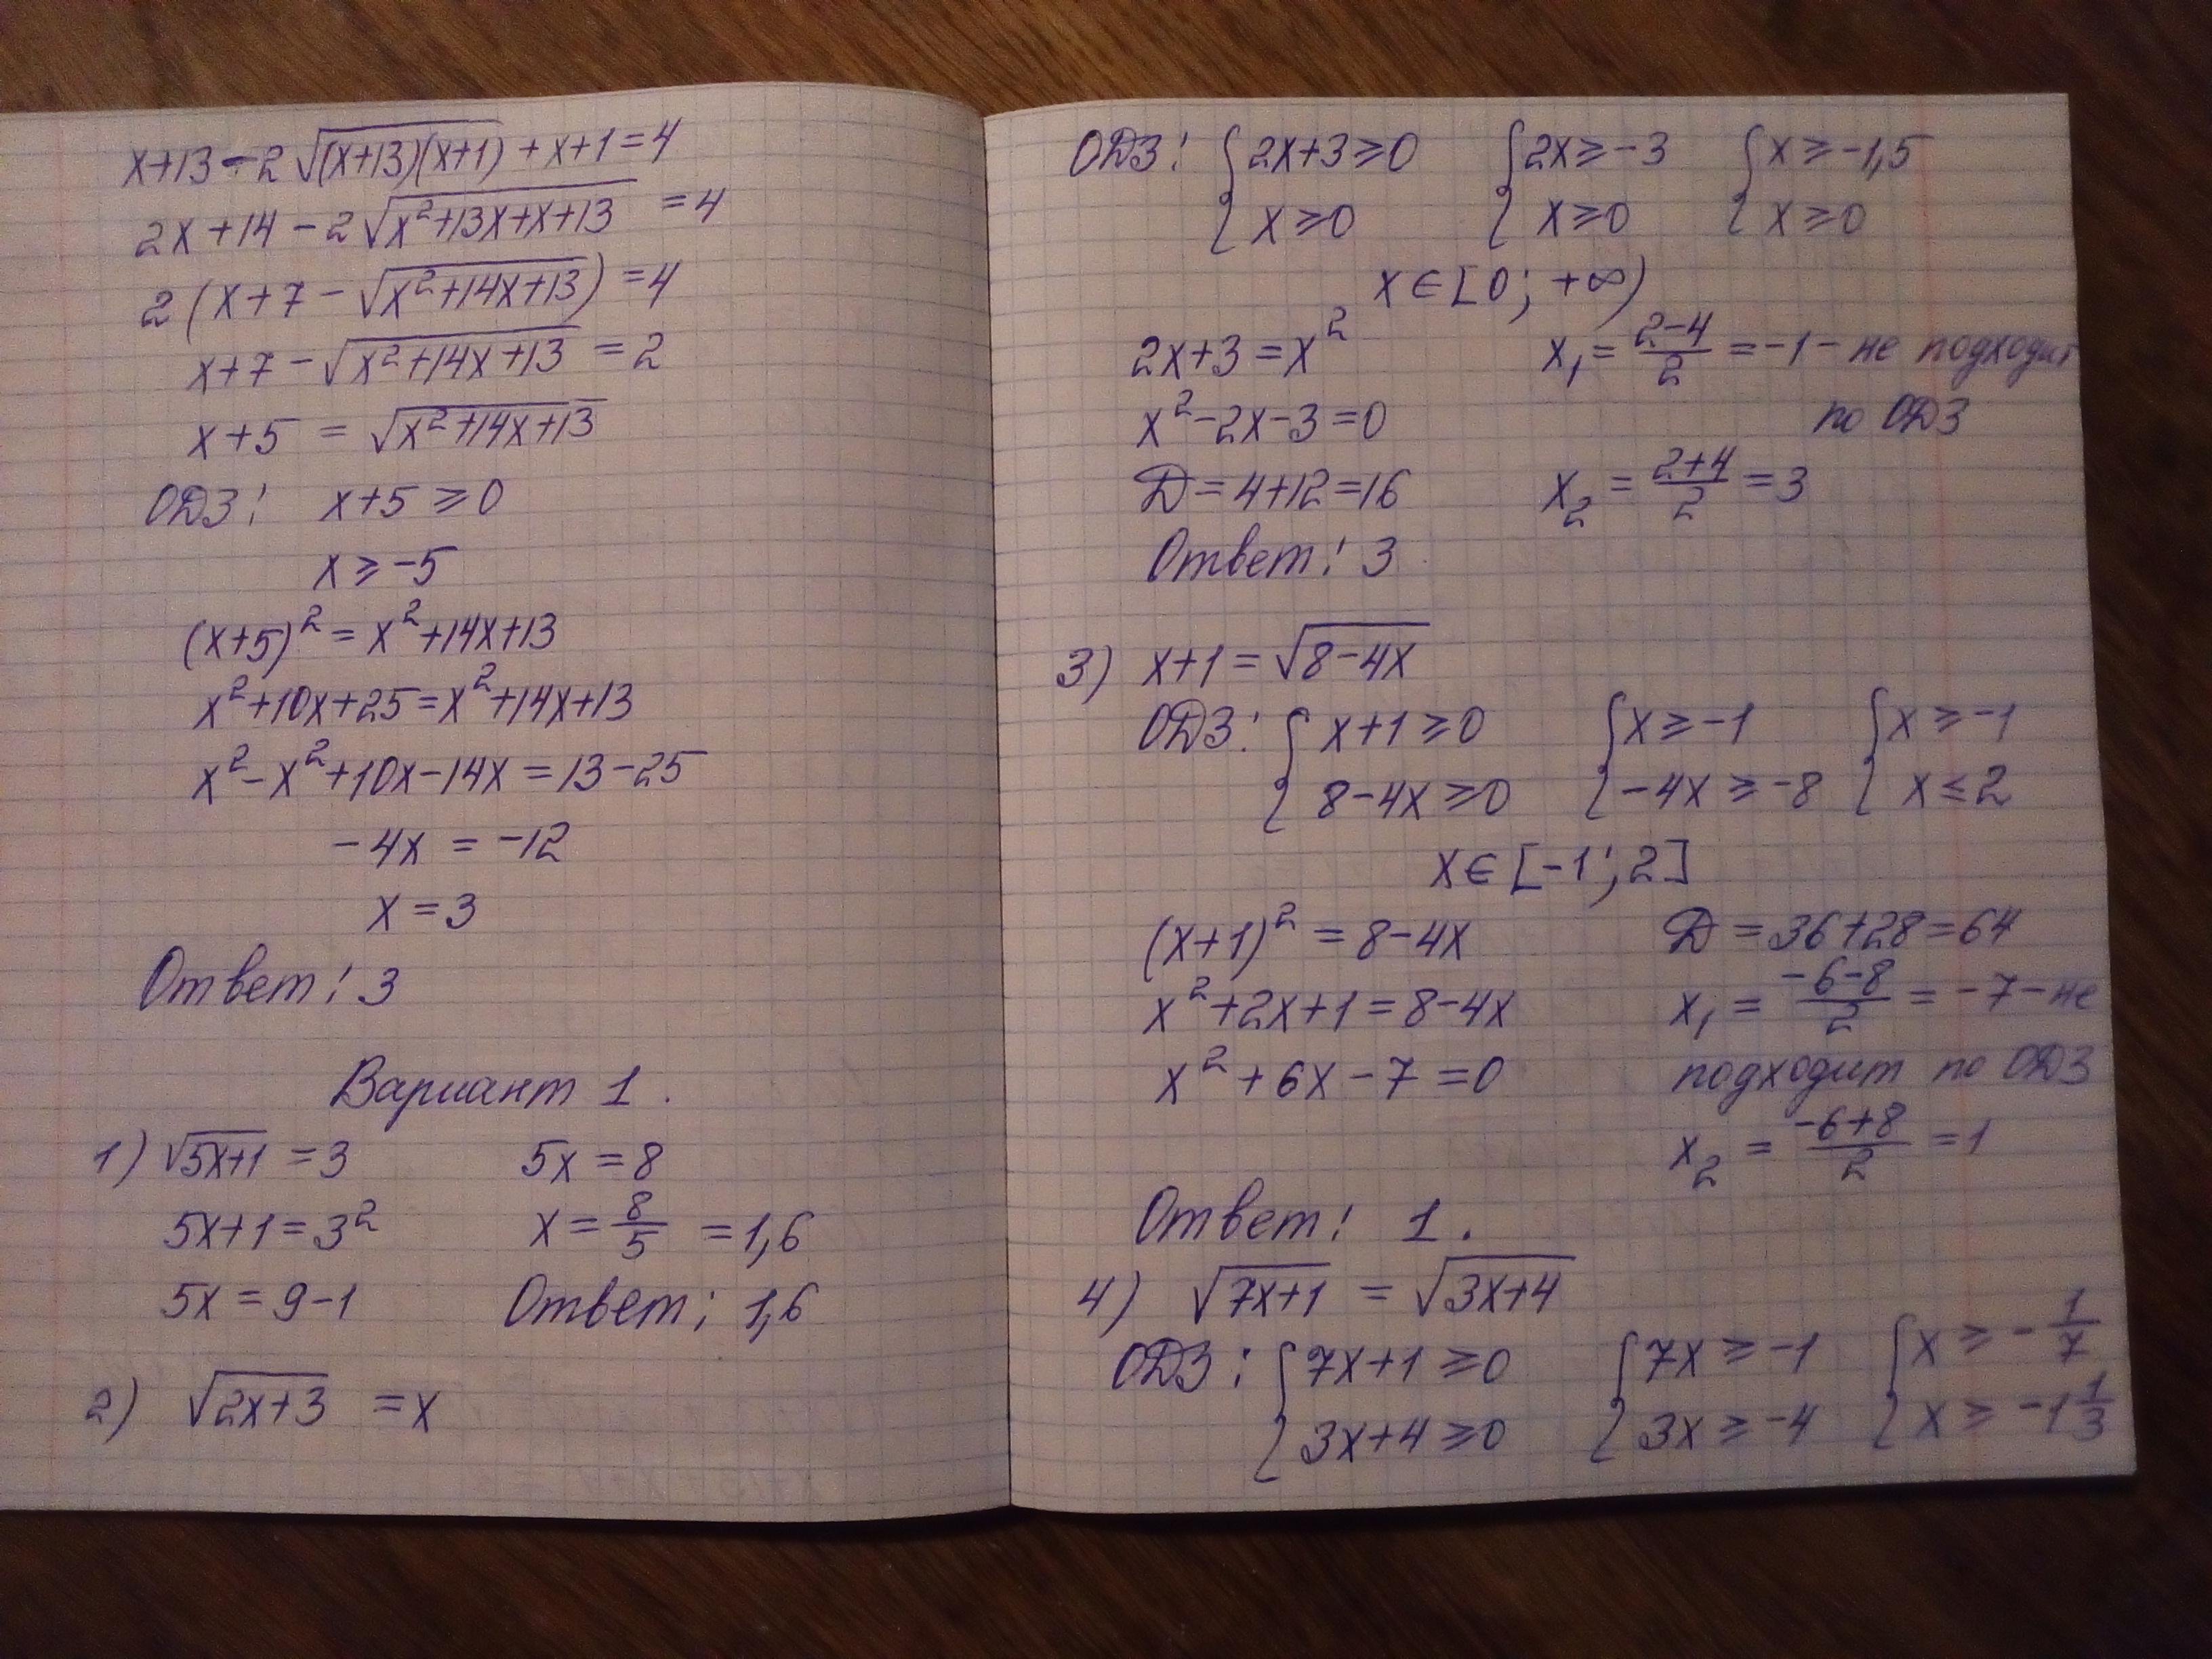 x+13-2√(x+13)(x+1) + x+1=4
2x+14-2√x²+13x+x+13 =4
2(x+7-√x²+14x+13)=4
x+7-√x²+14x+13 =2
x+5 = √x²+14x+13
ОДЗ: x+5 ≥0
x ≥ -5
(x+5)² = x²+14x+13
x²+10x+25=x²+14x+13
x²-x²+10x-14x=13-25
-4x = -12
x=3
Ответ: 3
Вариант 1.
1) √5x+1 =3
5x+1=3²
5x=9-1
5x=8
x=8/5 =1,6
Ответ: 1,6
2) √2x+3 =x
ОДЗ: {2x+3≥0 {2x≥-3 {x≥-1,5
{x≥0 {x≥0 {x≥0
x∈[0; +∞)
2x+3=x²
x²-2x-3=0
D=4+12=16
x₁=2-4/2=-1- не подходит
по ОДЗ
x₂=2+4/2=3
Ответ: 3
3) x+1=√8-4x
ОДЗ: {x+1≥0 {x≥-1 {x≥-1
{8-4x≥0 {-4x≥-8 {x≤2
x∈[-1; 2]
(x+1)²=8-4x
x²+2x+1=8-4x
x²+6x-7=0
D=36+28=64
x₁=-6-8/2=-7-не
подходит по ОДЗ
x₂=-6+8/2=1
Ответ: 1.
4) √7x+1 = √3x+4
ОДЗ: {7x+1≥0 {7x≥-1 {x≥-1/7
{3x+4≥0 {3x≥-4 {x≥-1 1/3